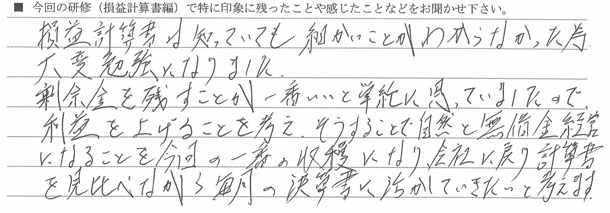 ■ 今回の研修（損益計算書編）で特に印象に残ったことや感じたことなどをお聞かせ下さい。
損益計算書は知っていても細かいことがわからなかった為
大変勉強になりました。
剰余金を残すことが一番いいと単純に思っていましたので
利益を上げることを考え、そうすることで自然と無借金経営
になることを今回の一番の収穫になり、会社に戻り計算書
を見比べながら毎月の決算書に活かしていきたいと考えます